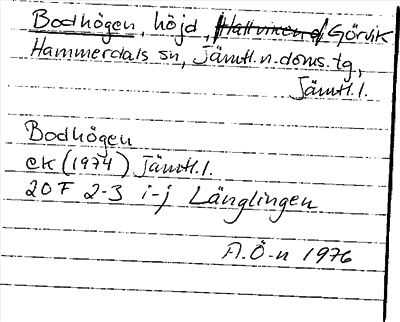 Bodhögen, höjd, Görvik
Hammerdals sn, Jämtl.n.doms.tg,
Jämtl.l.
Bodhögen
ek (1974) Jämtl.l.
20F 2-3 i-j Länglingen
A.Ö-n 1976